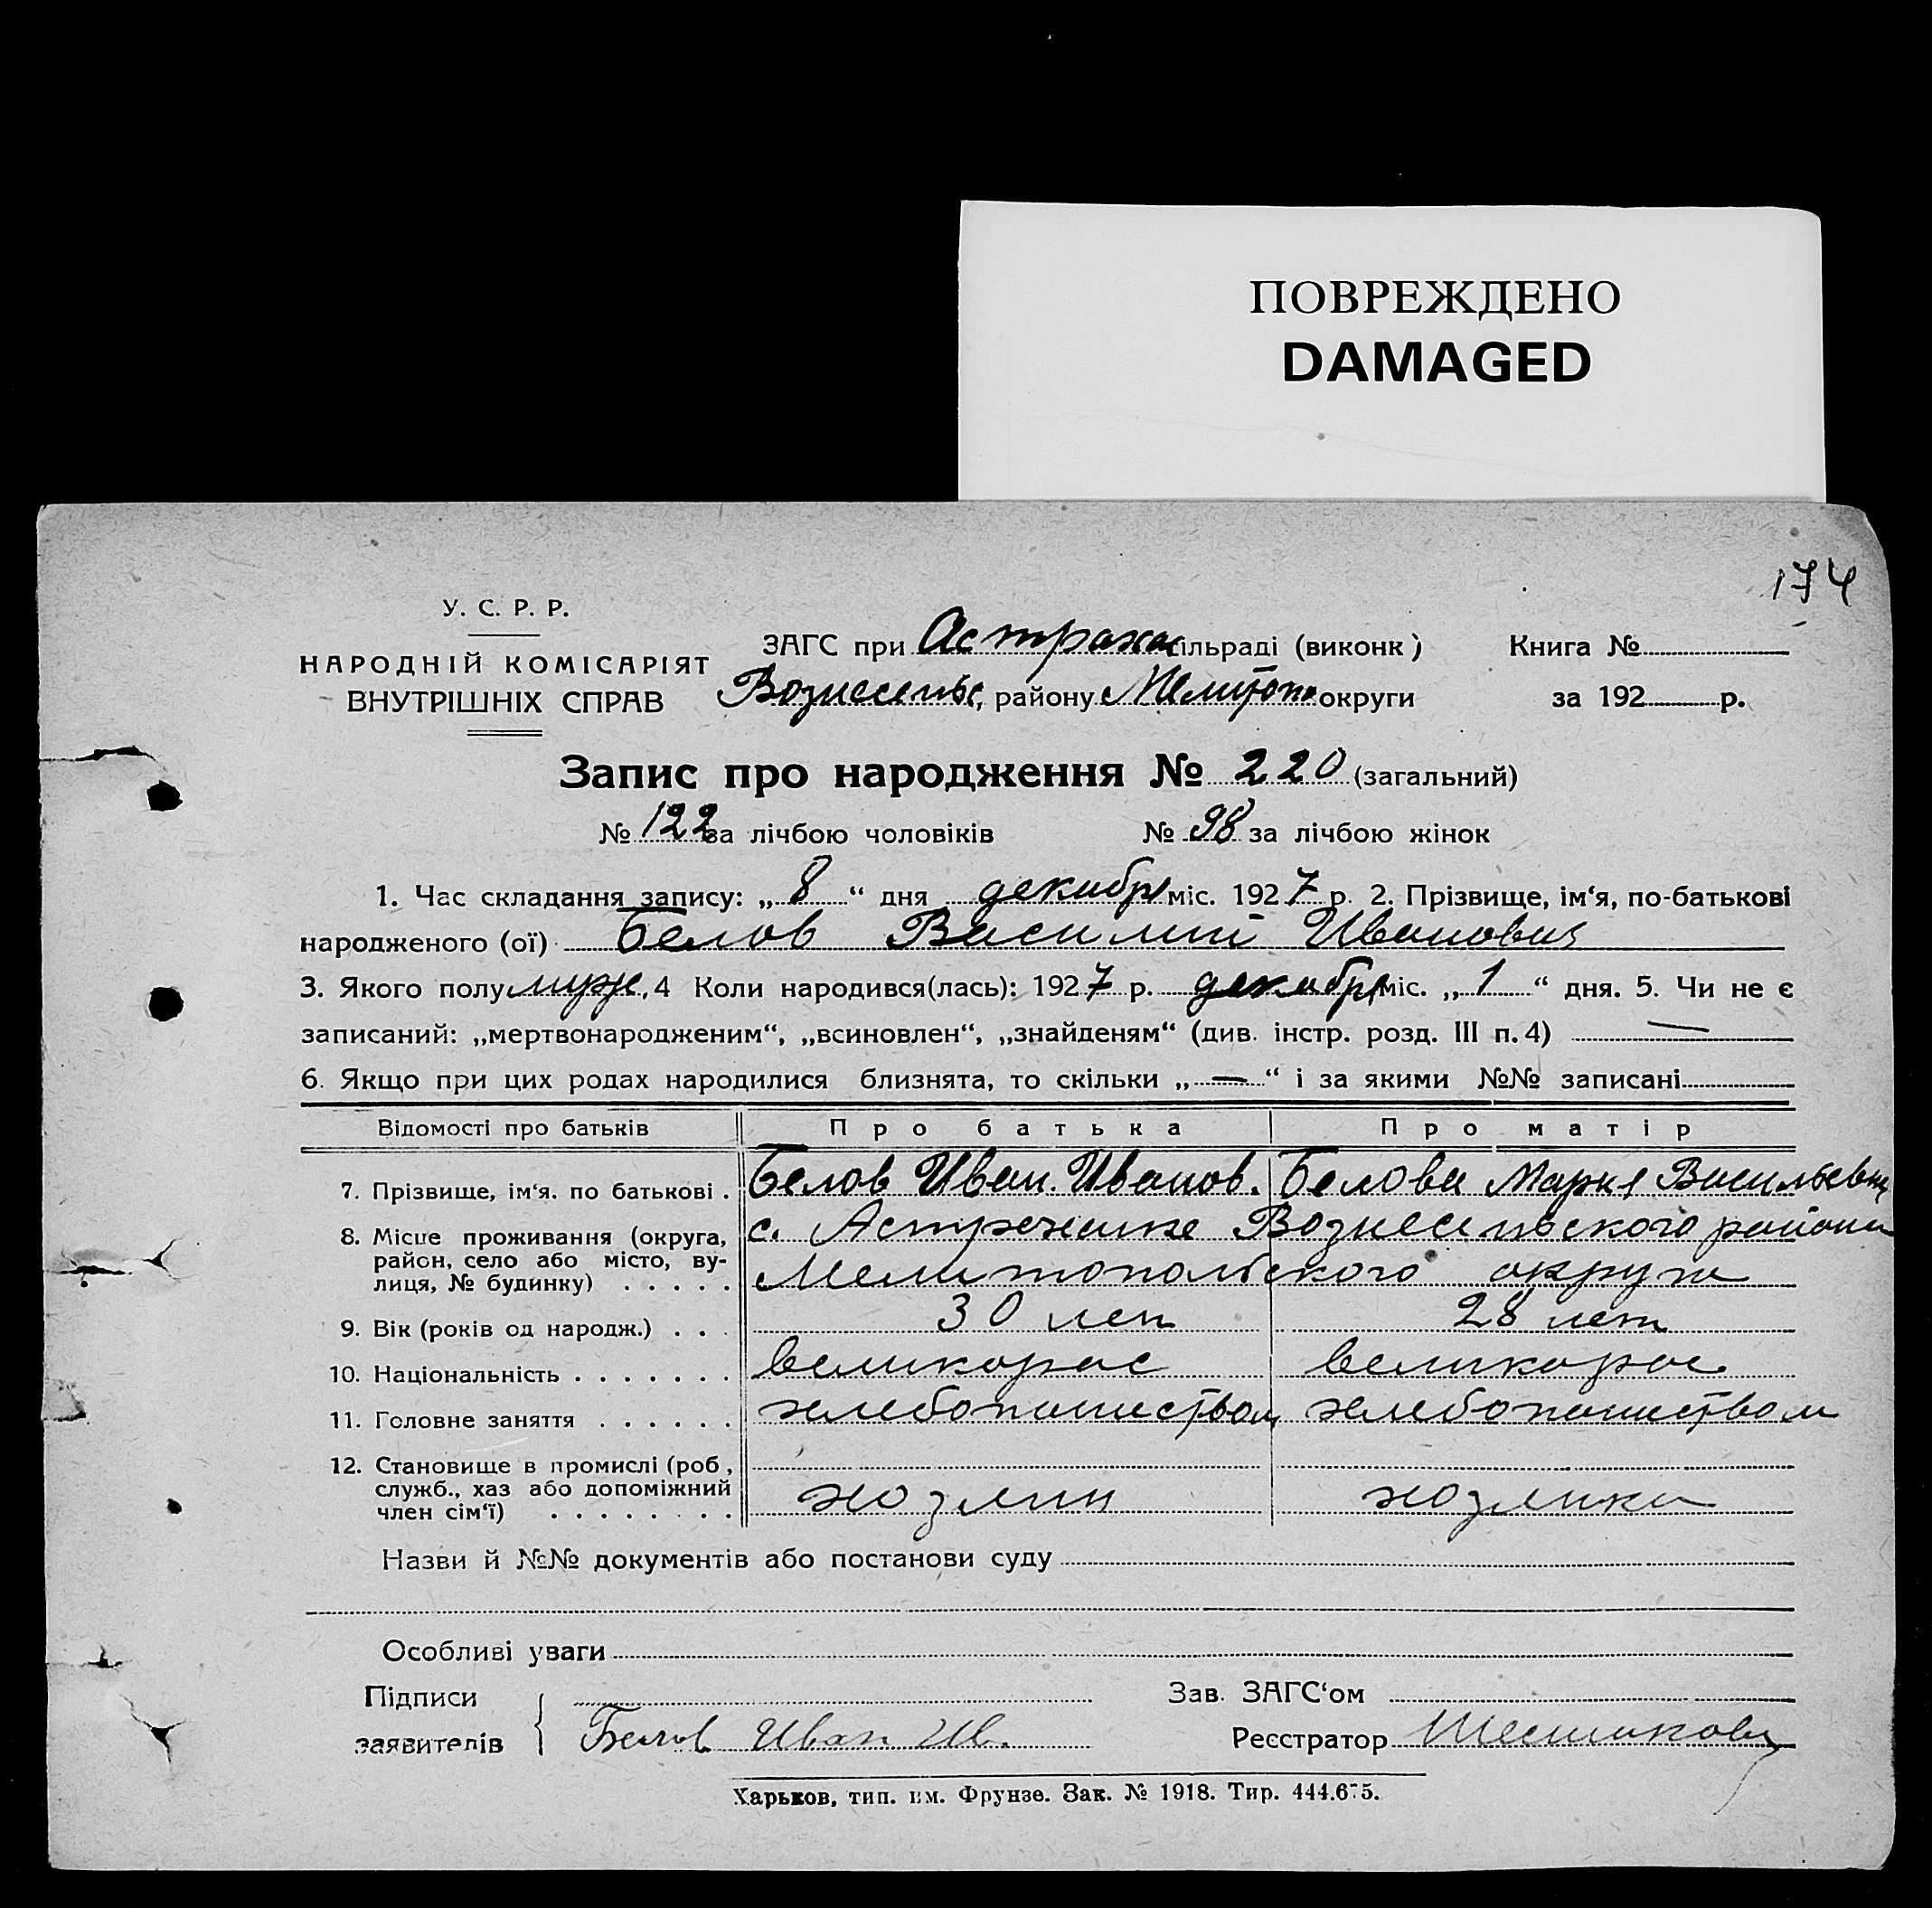 ПОВРЕЖДЕНО
DAMAGED
174
У. С. Р. Р.
НАРОДНІЙ КОМІСАРІЯТ
ВНУТРІШНІХ СПРАВ
ЗАГС при Астрахан сільраді (виконк)
Вознесеньс, району Мелитоп округи
Книга №
за 192 р.
Запис про народження № 220 (загальний)
№ 122 за лічбою чоловіків № 98 за лічбою жінок
1. Час складання запису: „8“ дня декабря міс. 1927 р. 2. Прізвище, ім‘я, по-батькові
народженого (ої) Белов Василий Иванович
3. Якого полу муж. 4 Коли народився(лась): 1927 р. декабря міс. „1“ дня. 5. Чи не є
записаний: „мертвонародженим“, „всиновлен“, „знайденям“ (див. інстр. розд. III п. 4) —
6. Якщо при цих родах народилися близнята, то скільки „—“ і за якими №№ записані
Відомості про батьків Про батька Про матір
7. Прізвище, ім‘я. по батькові . Белов Иван. Иванов. Белова Мария Васильевна
8. Місце проживання (округа, район, село або місто, вулиця, № будинку) . . . . . с. Астраханке Вознесеньского района
Мелитопольского округа
9. Вік (років од народж.) . . . 30 лет 28 лет
10. Національність . . . . . . . великорос великорос
11. Головне заняття . . . . . . хлебопашеством хлебопашеством
12. Становище в промислі (роб., служб., хаз або допоміжний член сім‘ї) . . . . . . . . хозяин хозяйка
Назви й №№ документів або постанови суду
Особливі уваги
Підписи
заявителів Белов Иван Ив.
Зав. ЗАГС‘ом
Реєстратор
Харьков, тип. им. Фрунзе. Зак. № 1918. Тир. 444.675.